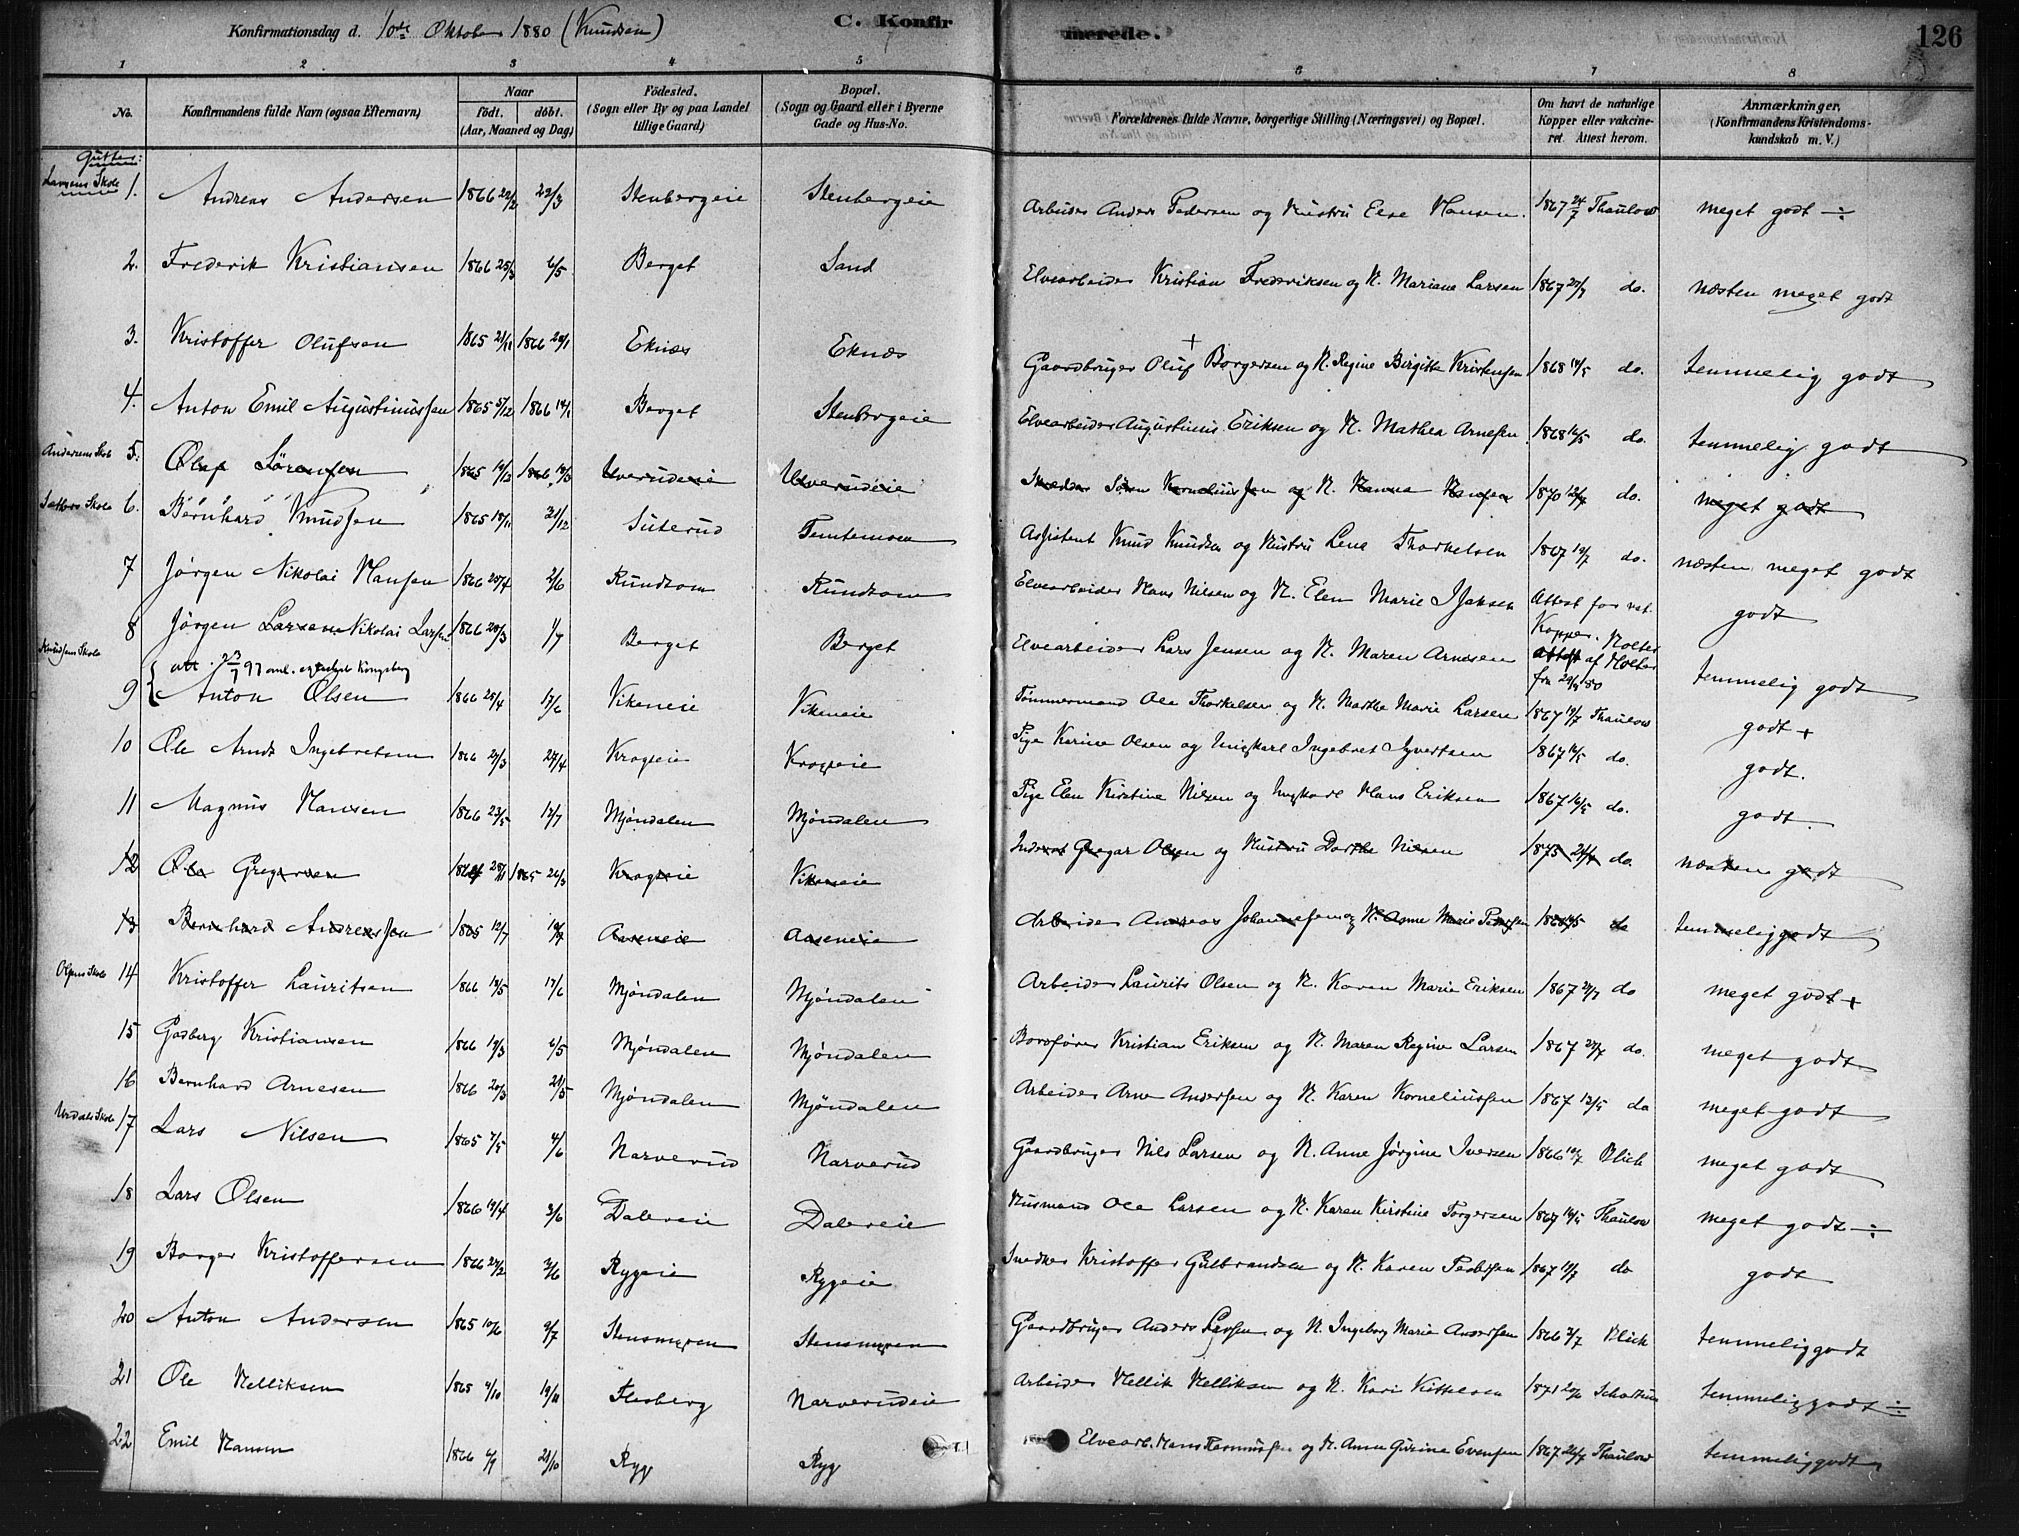 Konfirmationsdag d. 10de Oktober 1880 (Knudsen)
C. Konfirmerede.
126
1 2 3 4 5 6 7 8
No. Konfirmandens fulde Navn (ogsaa Efternavn) Naar født. døbt. (Aar, Maaned og Dag) Fødested. (Sogn eller By og paa Landet tillige Gaard) Bopæl. (Sogn og Gaard eller i Byerne Gade og Hus-No. Forældrenes fulde Navne, borgerlige Stilling (Næringsvei) og Bopæl. Om havt de naturlige Kopper eller vakcineret. Attest herom. Anmærkninger, (Konfirmandens Kristendomskundskab m. V.)
Gutter:
Larsens Skole 1. Andreas Andersen 1866 22/2 22/3 Stenbergeie Stenbergeie Arbeider Anders Pedersen og Hustru Else Hansen. 1867 24/7 Thaulow meget godt ÷
2. Frederik Kristiansen 1866 25/3 6/5 Berget Sand Elvearbeider Kristian Frederiksen og H. Mariane Larsen 1867 do. næsten meget godt
3. Kristoffer Olufsen 1865 21/11 1866 28/1 Eknæs Eknæs Gaardbruger Oluf + Borgersen og H. Regine Birgitte Kristensen 1868 14/5 do. temmelig godt
4. Anton Emil Augustinussen 1865 5/12 1866 14/1 Berget Stenbergeie Elvearbeider Augustinus Eriksen og H. Mathea Arnesen 1868 14/5 do. temmelig godt
Andersens Skole 5. Olaf Sørensen 1865 19/12 1866 18/3 Ulverudeie Ulverudeie Skrædder Søren Korneliussen og H. Hanna Hansen 1870 do. meget godt
Sæthers Skole 6. Bernhard Knudsen 1865 18/11 31/12 Suterud Temtemoen Assistent Knud Knudsen og Hustru Lena Thorkelsen 1867 19/7 do. næsten meget godt
7 Jørgen Nikolai Hansen 1866 20/4 2/6 Rundtom Rundtom Elvearbeider Hans Nilsen og H. Elen Marie Isaksen Attest for nat. Kopper. Holter godt
8 Jørgen Larsen Nikolai Larsen 1866 28/3 1/7 Berget Berget Elvearbeider Lars Jensen og H. Maren Arnesen attest af Holter fra 29/9 80 temmelig godt
Knudsens Skole
att. 23/7 97 Kongsberg
9 Anton Olsen 1866 25/4 17/6 Vikeneie Vikeneie Tømmermand Ole Thorkelsen og H. Marthe Marie Larsen 1867 19/7 Thaulow godt +
10 Ole Arndt Ingebretsen 1866 24/4 Krogseie Krogseie Pige Karine Olsen og Ungkarl Ingebret Syvertsen 1867 16/5 do. godt.
11 Magnus Hansen 1866 23/5 12/7 Mjøndalen Mjøndalen Pige Elen Kirstine Nilsen og Ungkarl Hans Eriksen 1867 16/5 do. godt.
12 Ole Gregersen 1864 28/11 1865 26/3 Krogseie Vikeneie Inderst Gregar Olsen og Hustru Dorthe Nilsen 1873 do. næsten godt
13 Bernhard Andreassen 1865 12/7 Aaseneie Aaseneie Arbeider Andreas Johannesen og H. Anne Marie Pedersen do temmelig godt
Olsens Skole 14 Kristoffer Lauritsen 1866 13/5 17/6 Mjøndalen Mjøndalen Arbeider Laurits Olsen og H. Karen Marie Eriksen 1867 24/7 do meget godt +
15 Godberg Kristiansen 1866 19/3 6/5 Mjøndalen Mjøndalen Kristian Eriksen og H. Maren Regine Larsen 1867 24/7 do. meget godt
16 Bernhard Arnesen 1866 20/3 21/5 Mjøndalen Mjøndalen Arbeider Arne Andersen og H. Karen Korneliussen 1867 do meget godt
Urdals Skole 17 Lars Nilsen 1865 7/5 4/6 Narverud Narverud Gaardbruger Nils Larsen og H. Anne Jørgine Iversen 1866 Blich meget godt
18 Lars Olsen 1866 19/4 3/6 Dalereie Dalereie Husmand Ole Larsen og H. Karen Kirstine Torgersen 1867 14/5 Thaulow meget godt ÷
19 Borger Kristoffersen 1866 24/2 3/6 Rygeie Rygeie Snedker Kristoffer Gulbrandsen og H. Karen Pedersen 1867 11/7 do godt
20 Anton Andersen 1865 10/6 9/7 Stensmyren Stensmyren Gaardbruger Anders Larsen og H. Ingeborg Marie Andersen 1866 2/7 Blich temmelig godt
21 Ole Helliksen 1865 4/10 19/11 Flesberg Narverudeie Arbeider Hellik Helliksen og H. Kari Kittelsen 1871 temmelig godt ÷
22 Emil Hansen 1866 6/9 21/10 Ryg Ryg Elvearb. Hans Rasmussen og H. Anne Gurine Evensen 1867 26/7 Thaulow temmelig godt